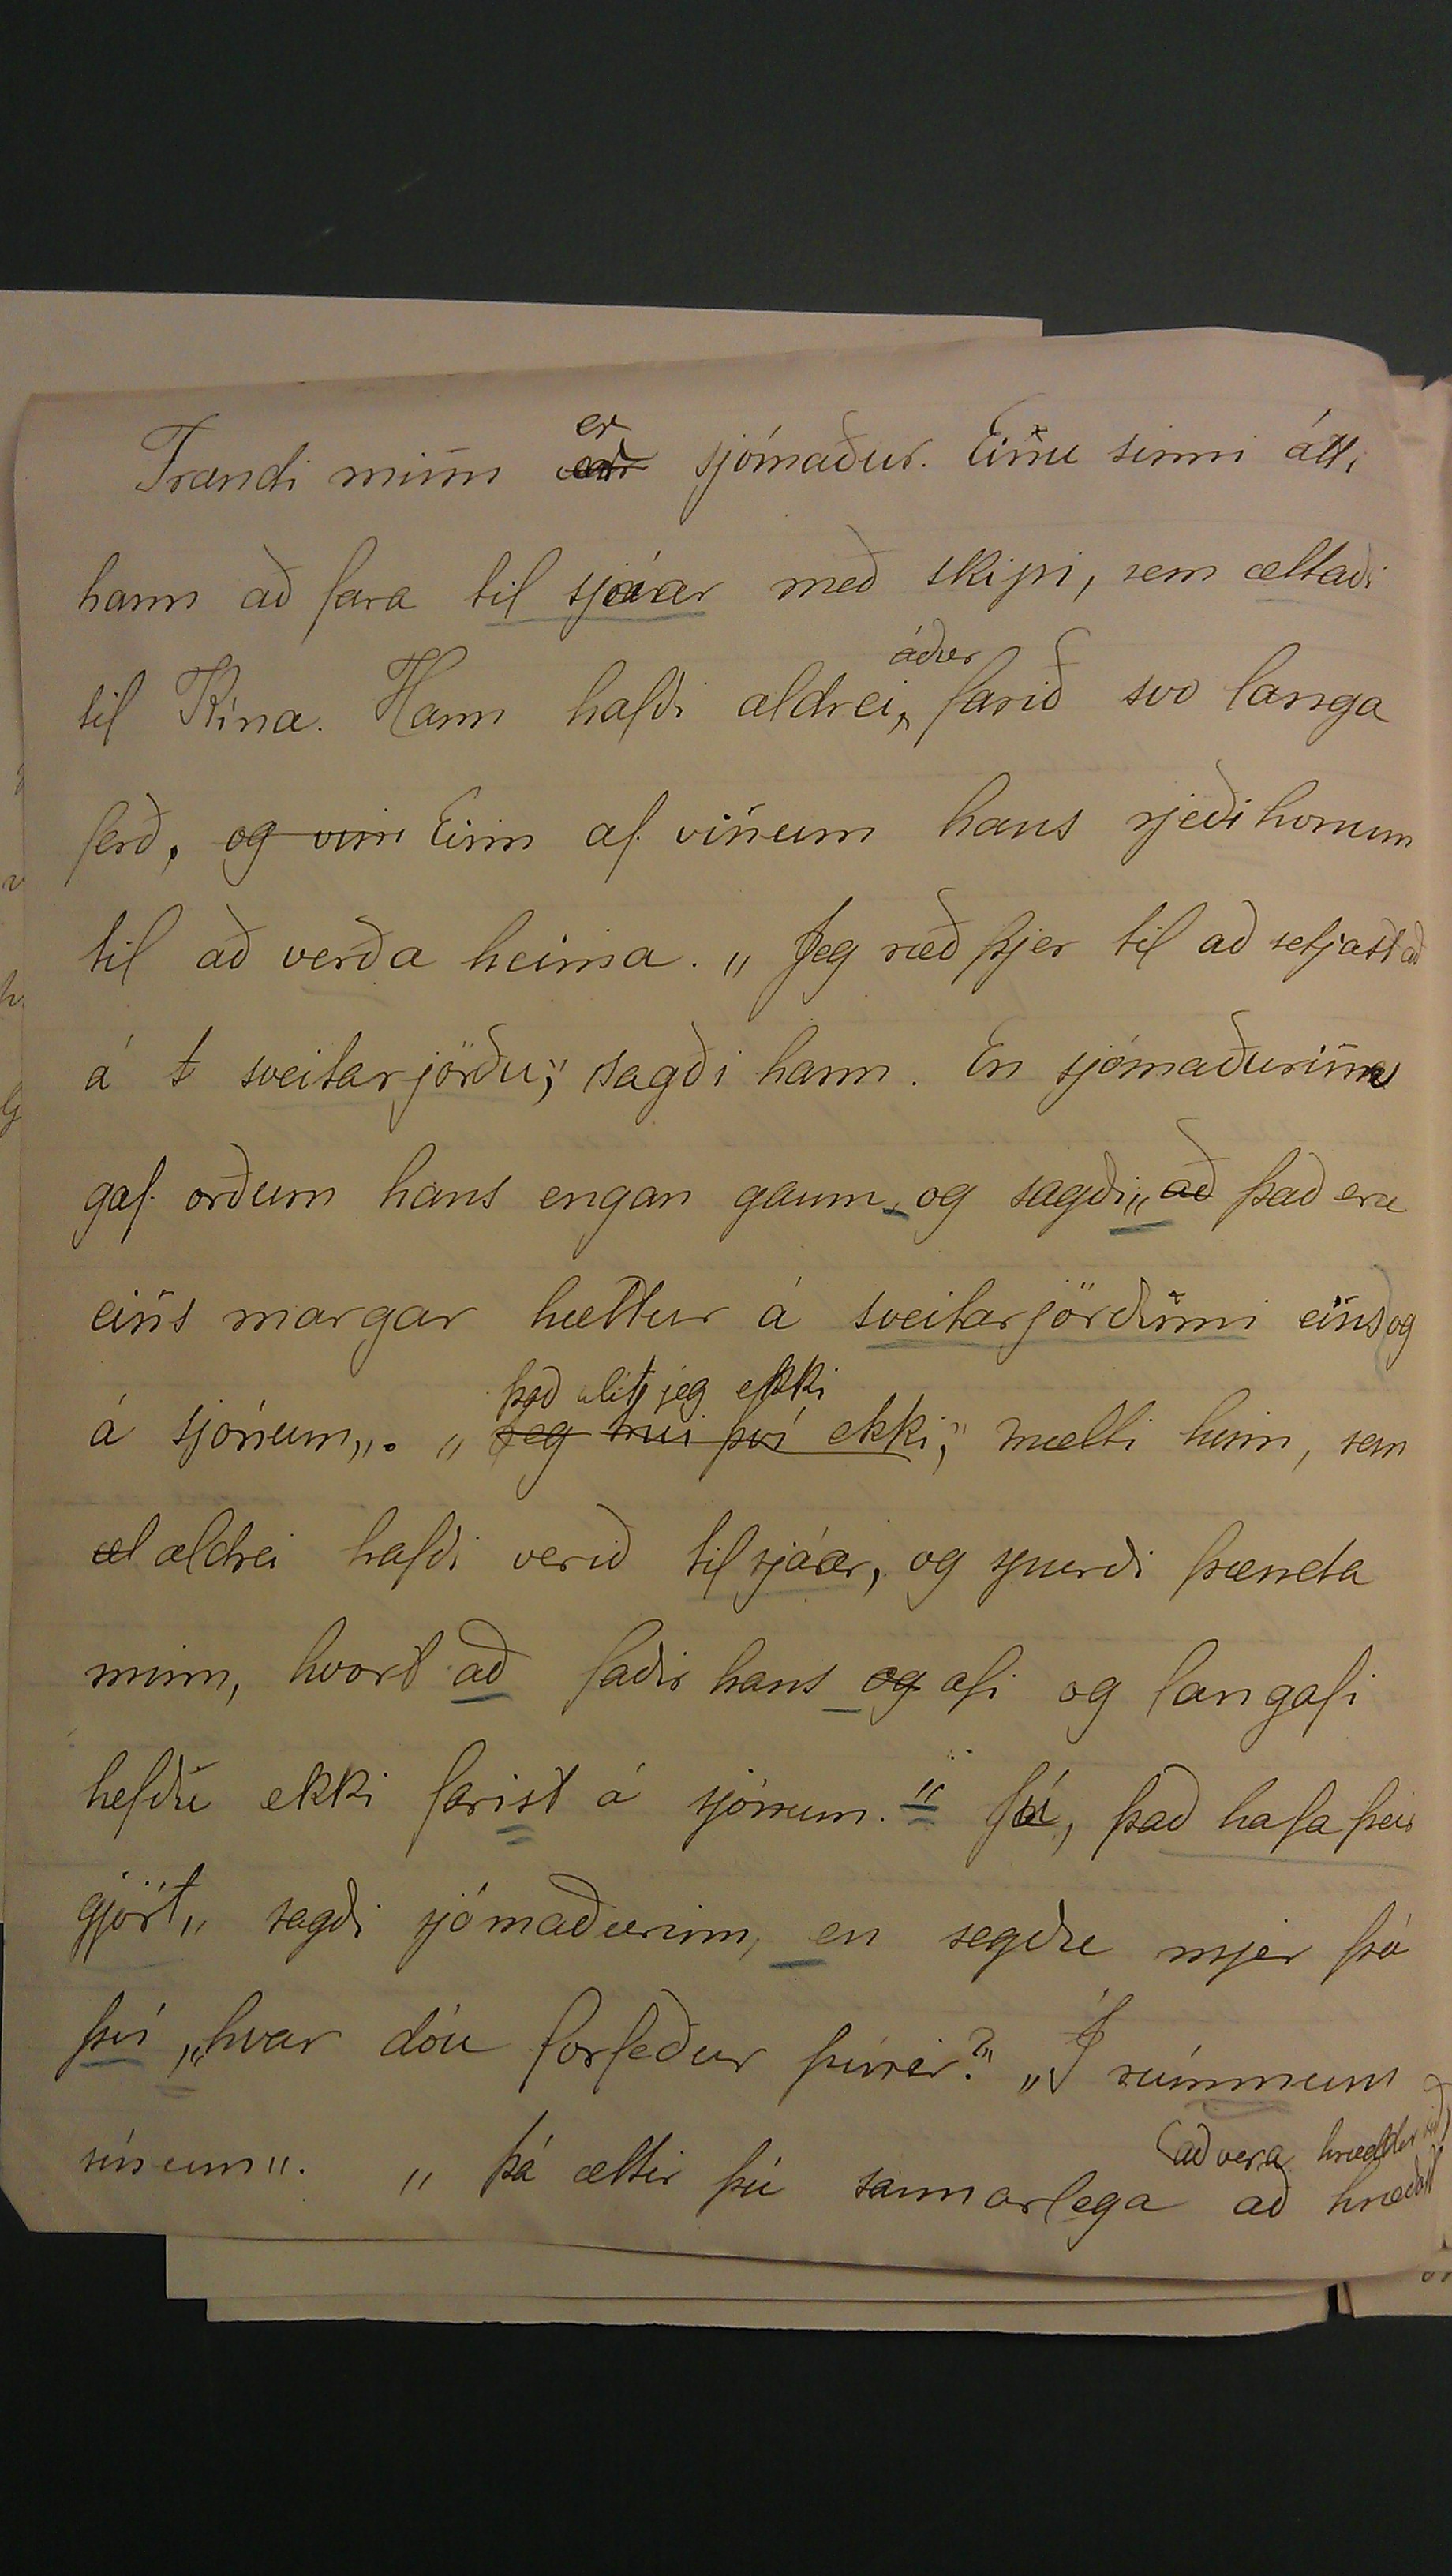 Frændi minn er sjómaður. Einu sinni átti
hann að fara til sjávar með skipi, sem ætlaði
til Kína. Hann hafði aldrei áður farið svo langa
ferð, og vin Einn af vinum hans rjeði honum
til að verða heima. „Jeg ræð þjer til að setjast að
á t sveitarjörðu," sagði hann. En sjómaðurinn
gaf orðum hans engan gaum, og sagði „að það eru
eins margar hættur á sveitarjörðinni eins og
það álít jeg ekki
á sjónum". „Jeg trúi því ekki," mælti hinn, sem
al aldrei hafði verið til sjáar, og spurði frænda
minn, hvort að faðir hans og afi og langafi
hefðu ekki farist á sjónum. " Jú, það hafa þeir
gjört" sagði sjómaðurinn, en segðu mjer þá
því, „hvar dóu forfeður þínir?" „Í rúmmum
sínum". „Þá ættir þú sannarlega að hræðast
(að vera hræddur við)